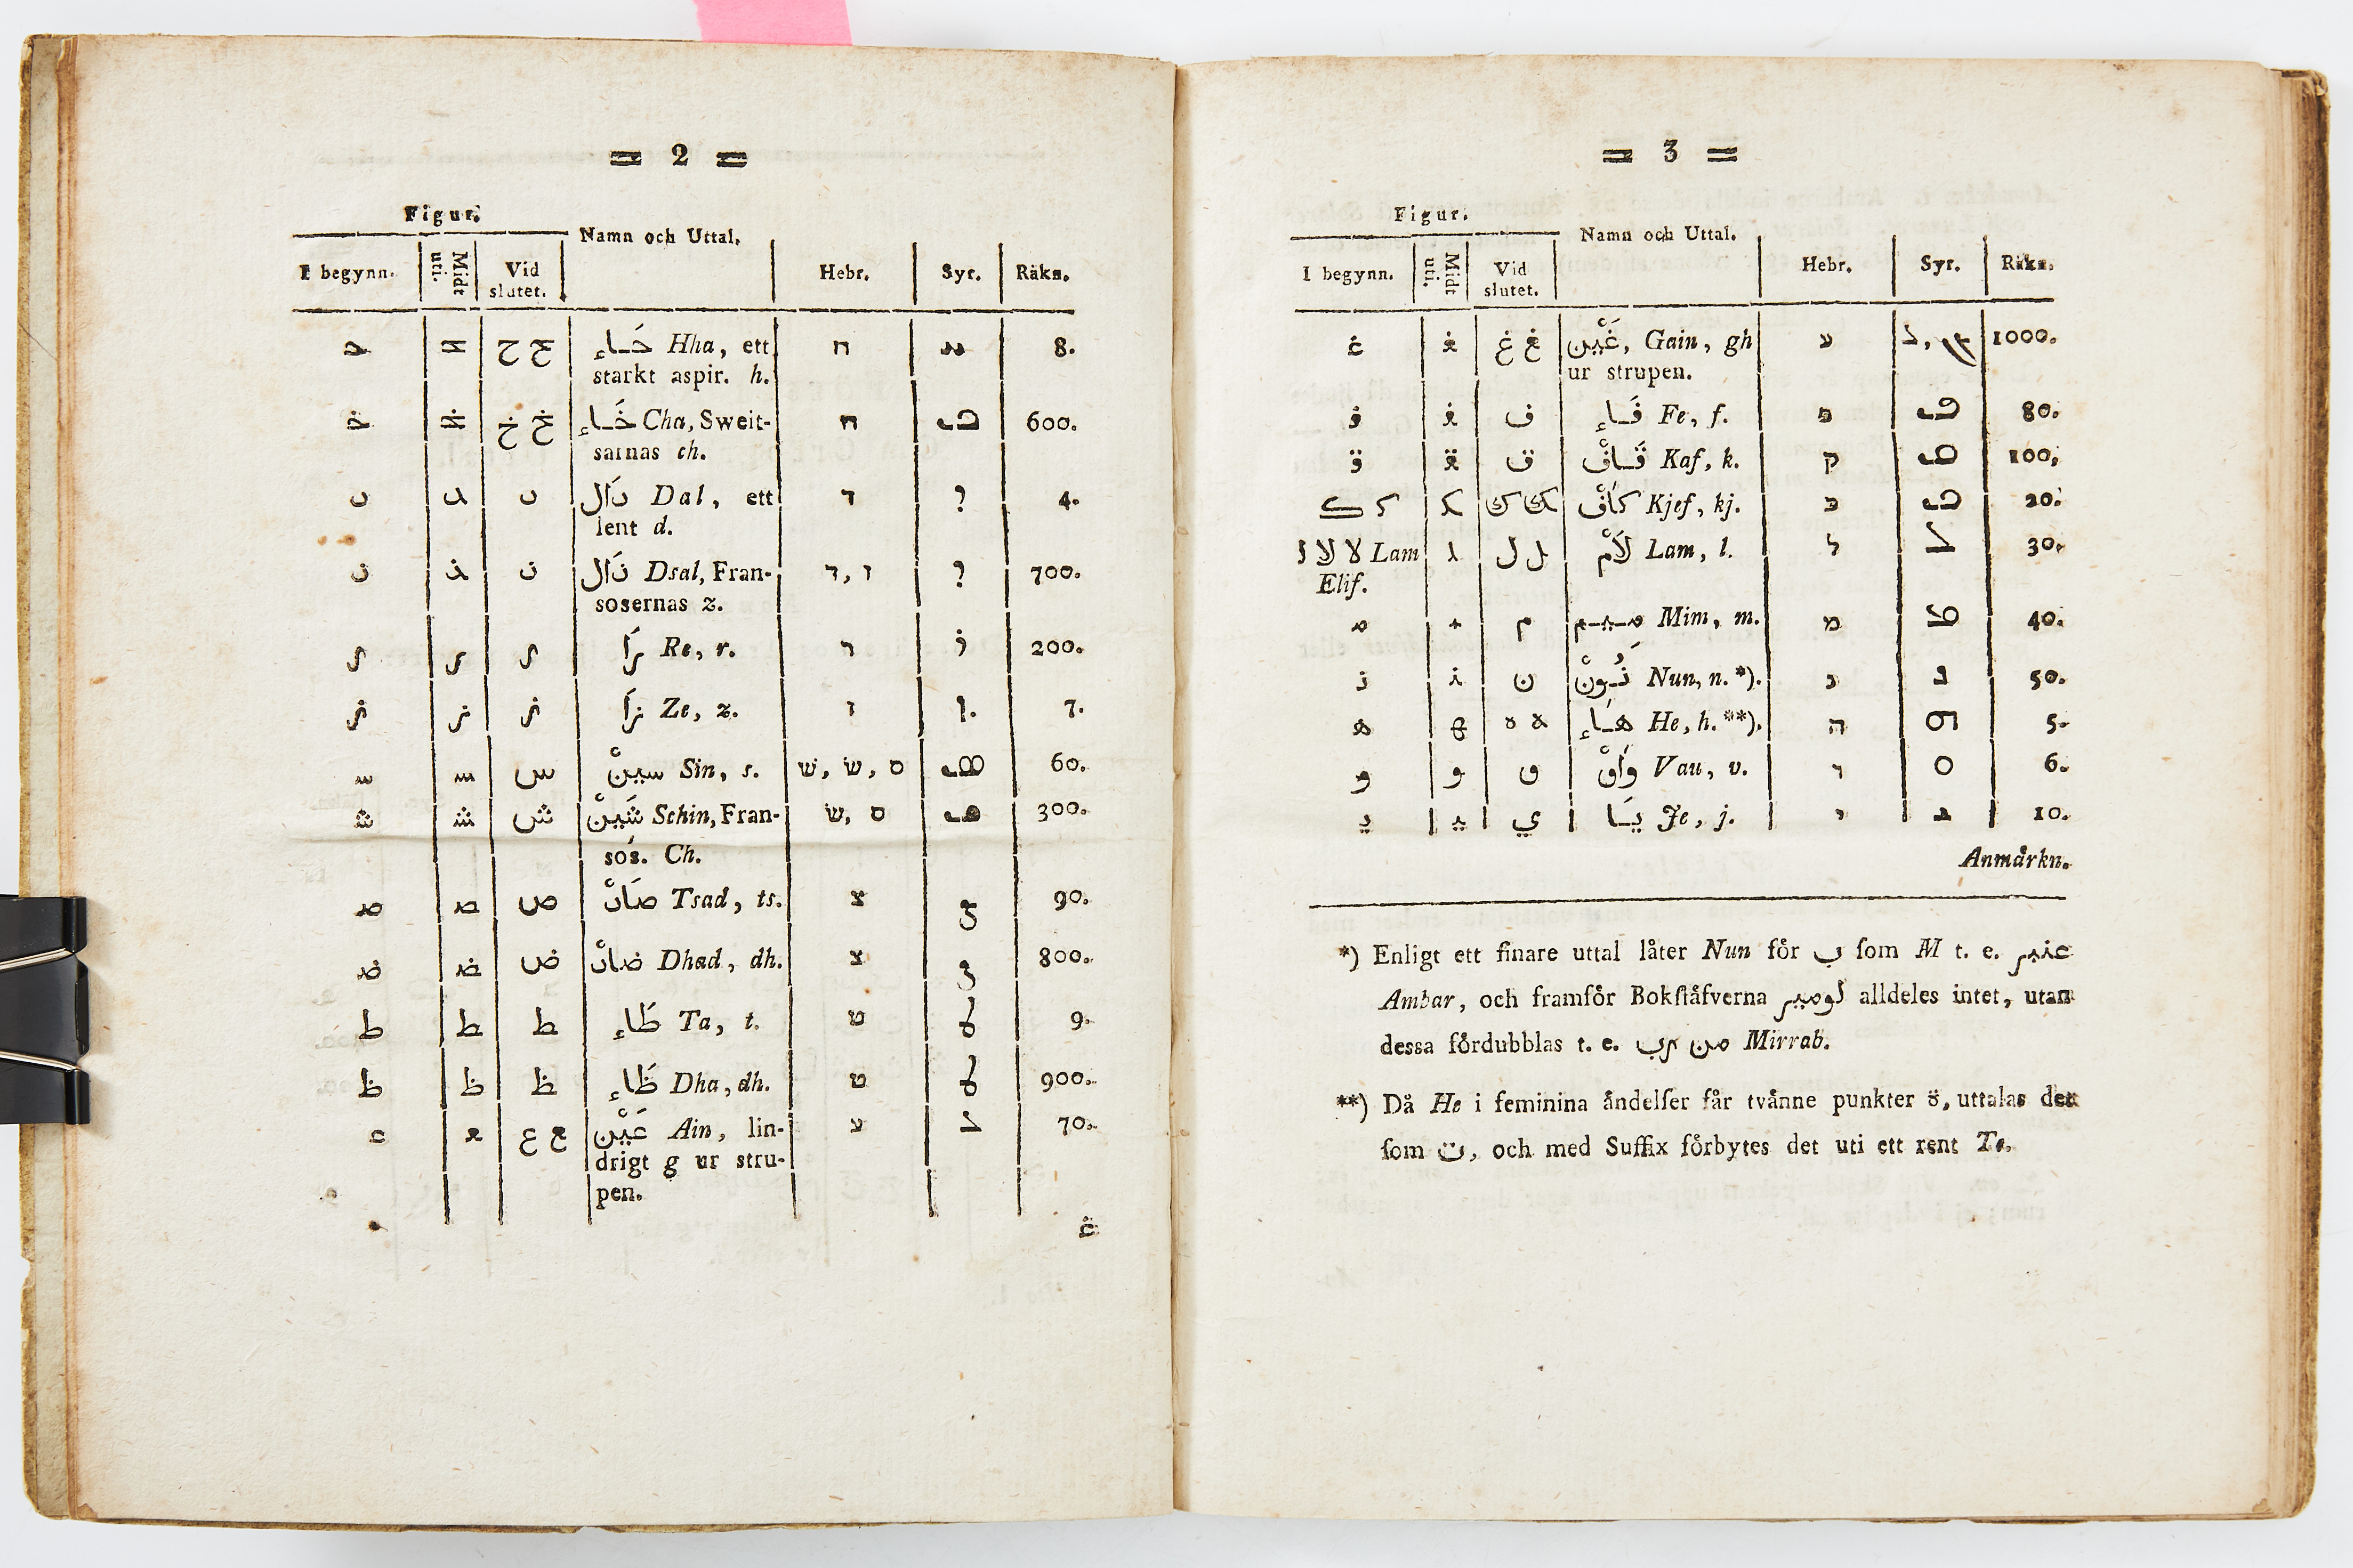 = 2 =
Figur.
Namn och Uttal.
I begynn. Midt uti. Vid slutet. Hebr. Syr. Räkn.
حـ ـحـ ح ـح حَـاء Hha, ett ח 8.
starkt aspir. h.
خـ ـخـ خ ـخ خَـاء Cha, Sweit- ח 600.
sarnas ch.
د ـد د دَال Dal, ett ד 4.
lent d.
ذ ـذ ذ ذَال Dsal, Fran- ז, ד 700.
sosernas z.
ر ـر ر رَا Re, r. ר 200.
ز ـز ز زَا Ze, z. ז 7.
سـ ـسـ س سينْ Sin, s. ש, שׂ, ס 60.
شـ ـشـ ش شَينْ Schin, Fran- שׁ, ס 300.
sos. Ch.
صـ ـصـ ص صَادْ Tsad, ts. צ 90.
ضـ ـضـ ض ضادْ Dhad, dh. צ 800.
ط ط ط طَاء Ta, t. ט 9.
ظ ظ ظ ظَاء Dha, dh. ט 900.
عـ ـعـ ع ـع عَيْن Ain, lin- ע 70.
drigt g ur stru-
pen.
غـ
= 3 =
Figur.
Namn och Uttal.
I begynn. Midt uti. Vid slutet. Hebr. Syr. Räkn.
غـ ـغـ غ ـغ غَيْن, Gain, gh ע 1000.
ur strupen.
فـ ـفـ ف فَـاء Fe, f. פ 80.
قـ ـقـ ق قَـافْ Kaf, k. ק 100.
كـ ـكـ ك ـك كَافْ Kjef, kj. כ 20.
لـ لا لا Lam ـلـ ل ـل لَامْ Lam, l. ל 30.
Elif.
مـ ـمـ م مِـيـم Mim, m. מ 40.
نـ ـنـ ن نُـونْ Nun, n. *). נ 50.
هـ ـهـ ه ـه هَـاء He, h. **). ה 5.
و و و وَاوْ Vau, v. ו 6.
يـ ـيـ ي يَـا Je, j. י 10.
Anmärkn.
*) Enligt ett finare uttal låter Nun för ب ſom M t. e. عنبر
Ambar, och framför Bokſtåfverna لوميير alldeles intet, utan
dessa fördubblas t. e. من رب Mirrab.
**) Då He i feminina ändelſer får tvänne punkter ة, uttalas det
ſom ت, och med Suffix förbytes det uti ett rent Te.